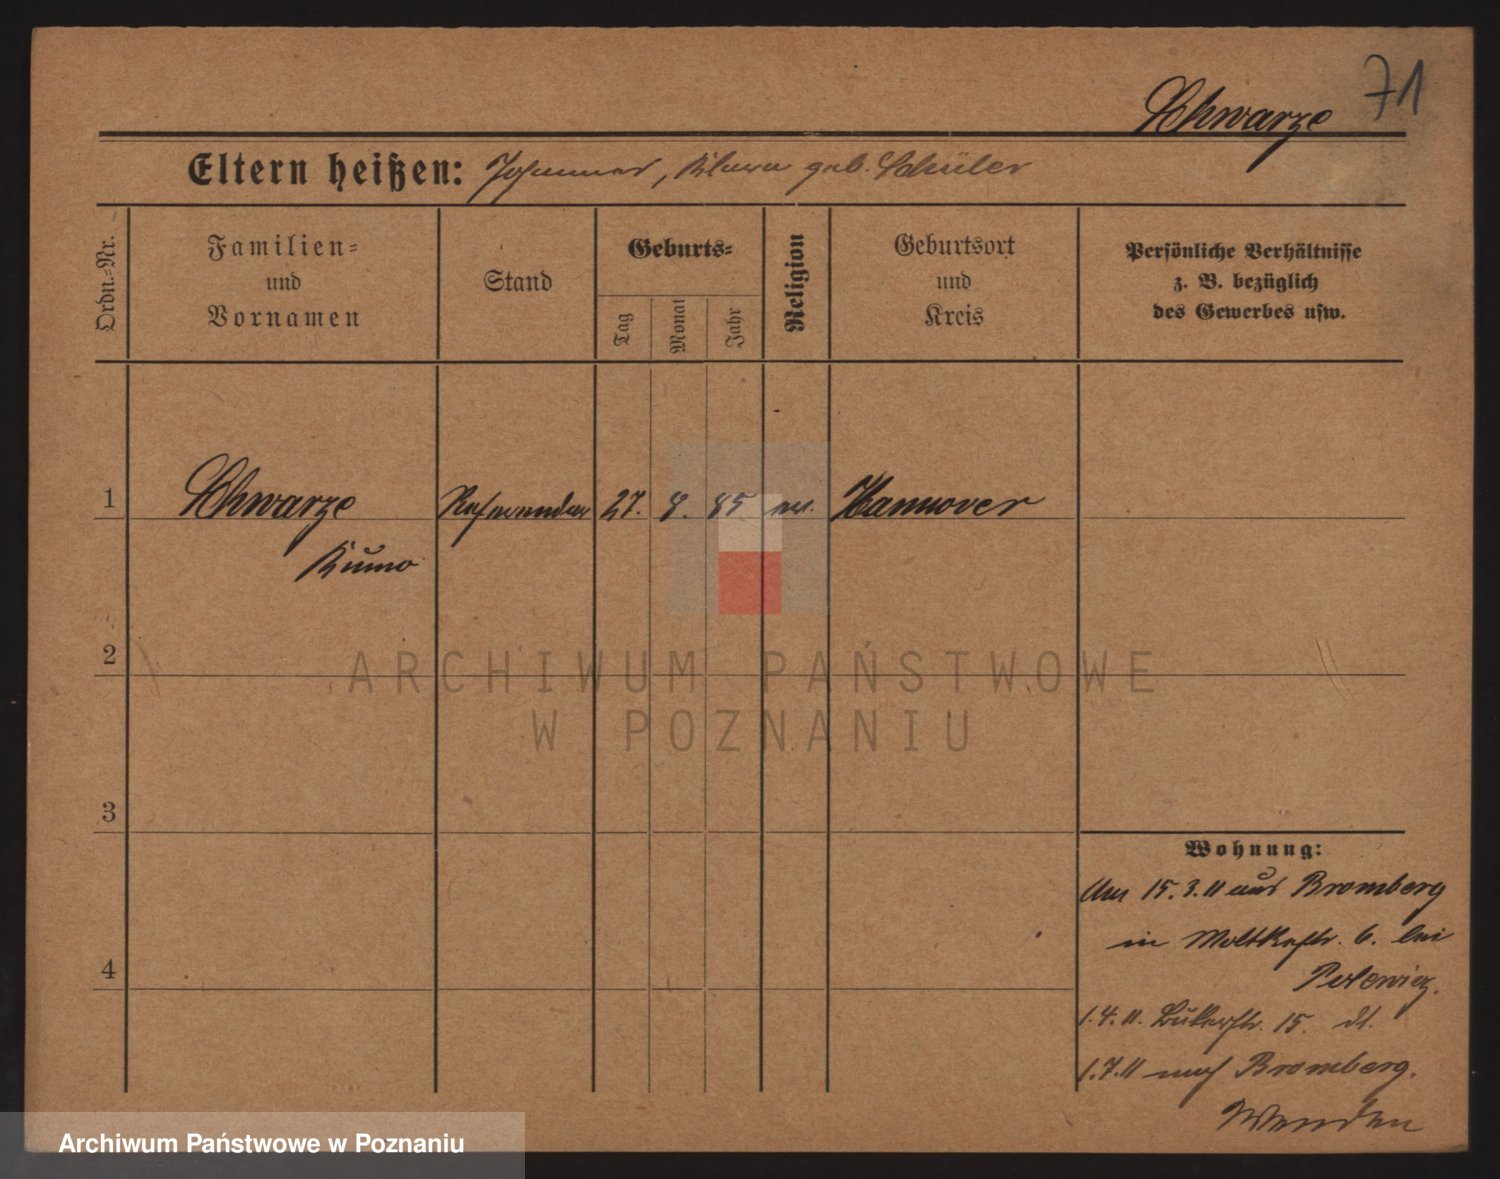 71
Schwarze
Eltern heißen: Johannes, Klara geb. Schüler
Ordn.-Nr.
Familien-
und
Vornamen
Stand
Geburts-
Tag
Monat
Jahr
Religion
Geburtsort
und
Kreis
Persönliche Verhältnisse
z. B. bezüglich
des Gewerbes usw.
1 Schwarze Referendar 27. 8. 85 ev. Hannover
Kuno
2
3
4
ARCHIWUM PAŃSTWOWE
W POZNANIU
Wohnung:
Am 15.3.11 aus Bromberg
in Moltkestr. 6. bei
1.4.11. 15. dt.
1.7.11 nach Bromberg.
Archiwum Państwowe w Poznaniu